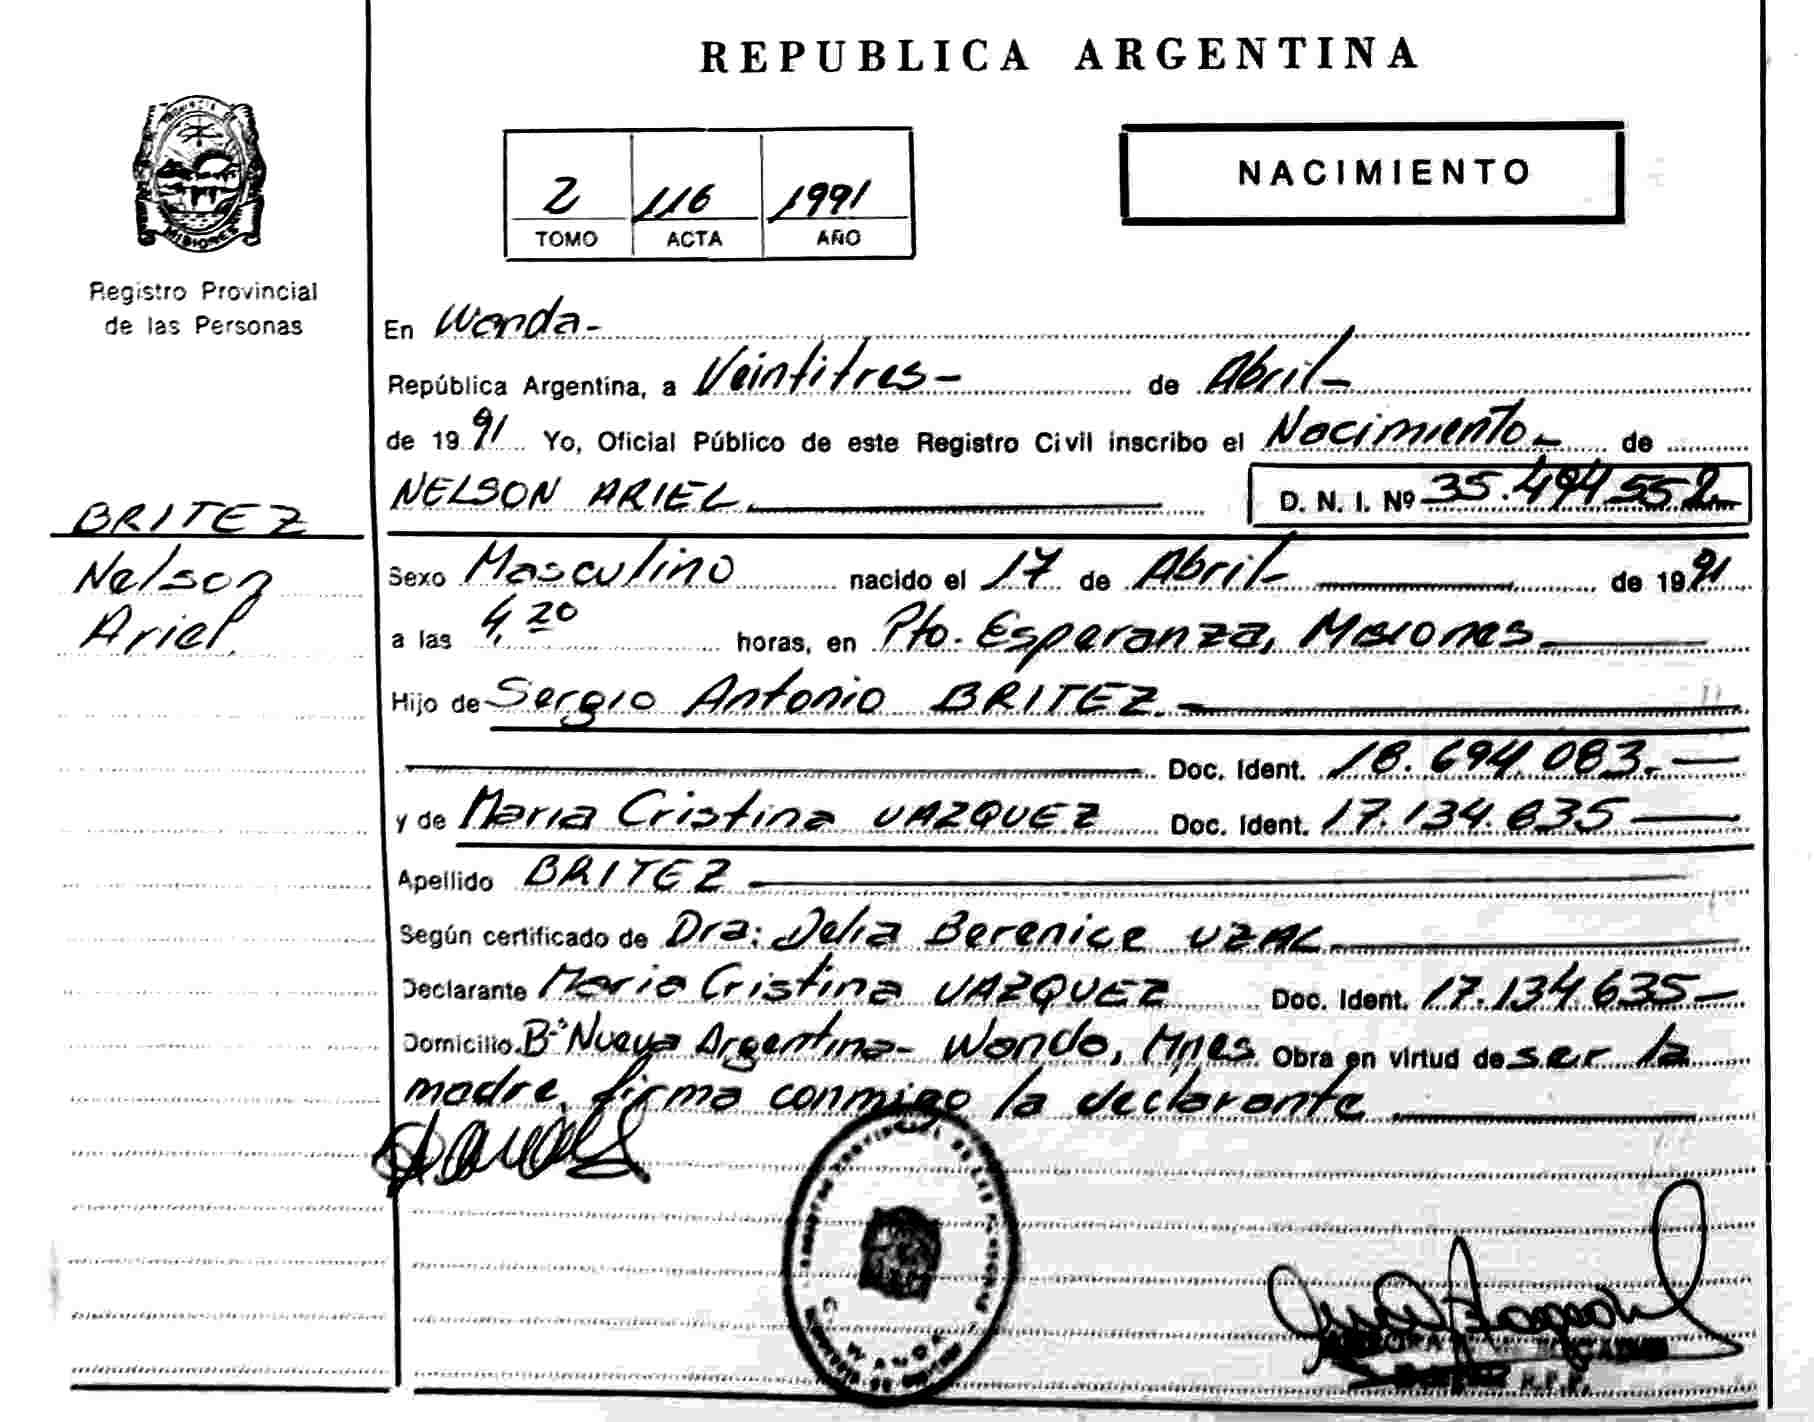 REPUBLICA ARGENTINA
NACIMIENTO
2 116 1991
TOMO ACTA AÑO
MISIONES
Registro Provincial
de las Personas
En Wanda-
República Argentina, a Veintitres- de Abril-
de 1991 Yo, Oficial Público de este Registro Civil inscribo el Nacimiento- de
NELSON ARIEL D. N. I. Nº 35.494.552
BRITEZ
Nelson
Ariel.
Sexo Masculino nacido el 17 de Abril- de 1991
a las 4,20 horas, en Pto. Esperanza, Misiones
Hijo de Sergio Antonio BRITEZ.-
Doc. Ident. 18.694.083.-
y de Maria Cristina VAZQUEZ Doc. Ident. 17.134.635
Apellido BRITEZ
Según certificado de Dra: Delia Berenice UZAL
Declarante Maria Cristina VAZQUEZ Doc. Ident. 17.134.635-
Domicilio Bº Nueva Argentina- Wanda, Mnes Obra en virtud de ser la
madre, firma conmigo la declarante
WANDA